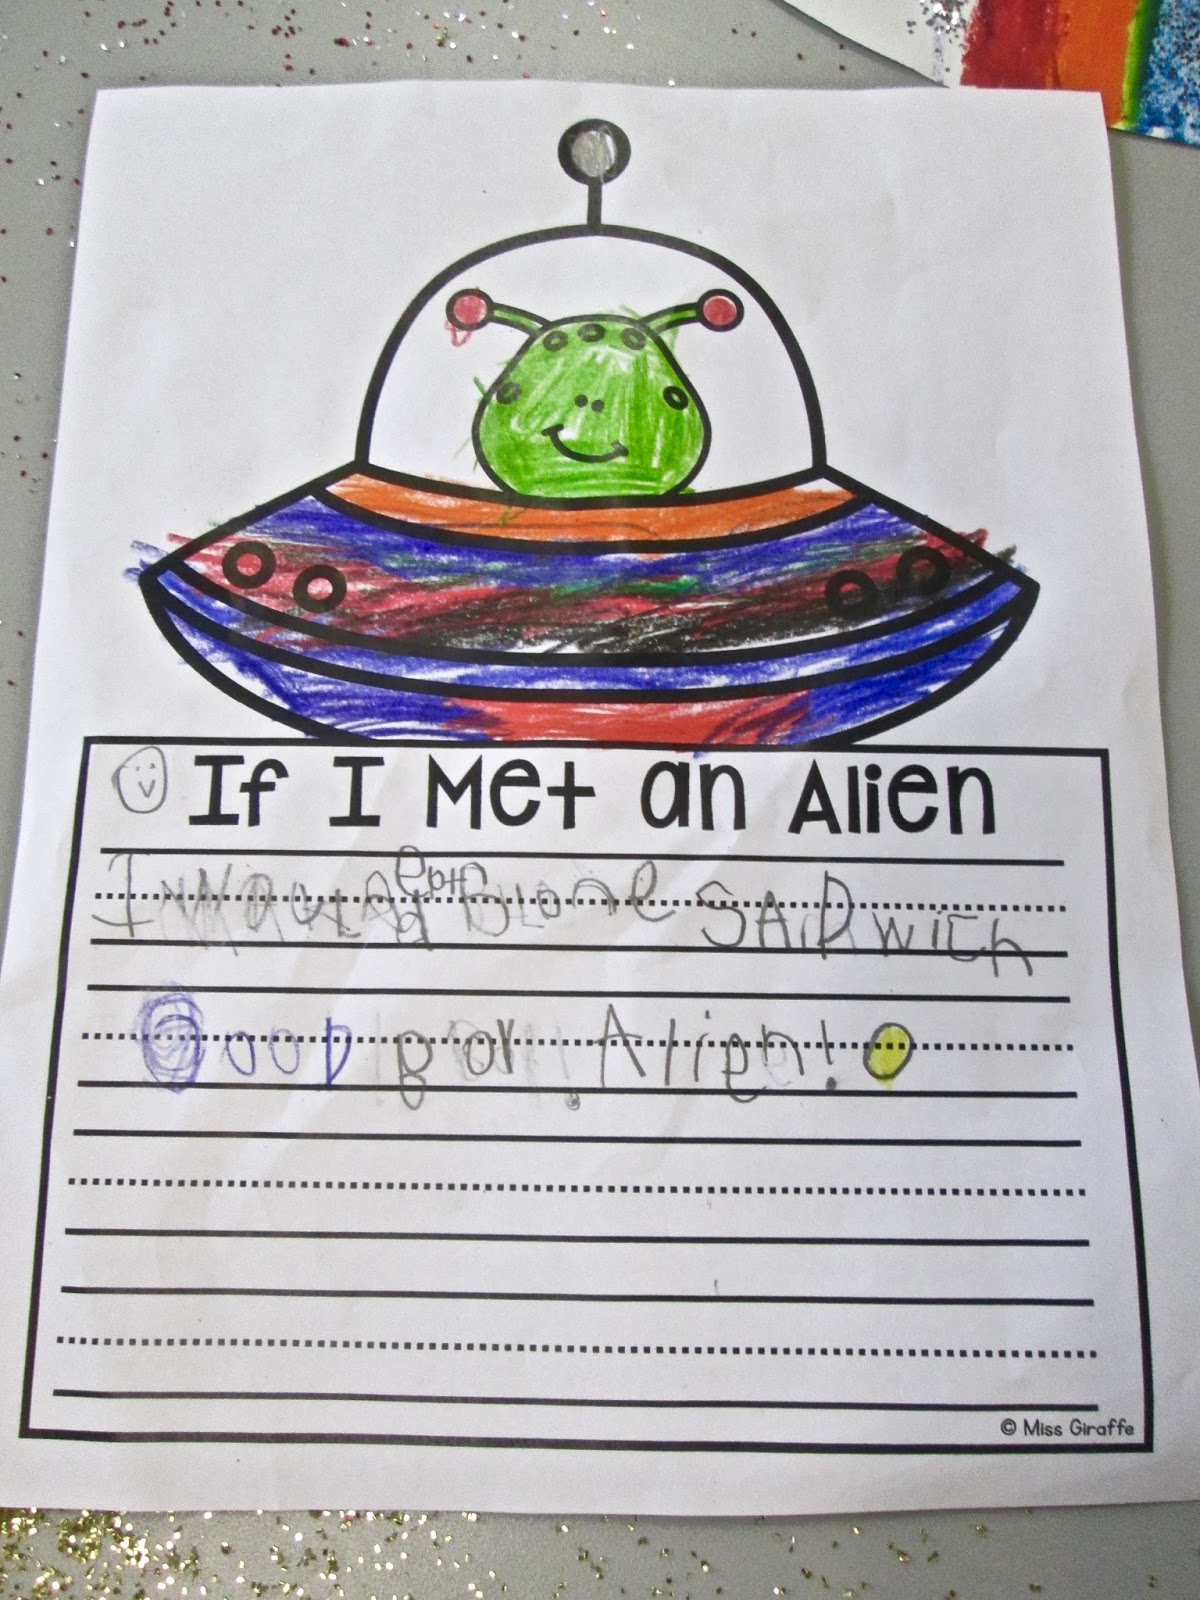 If I Met an Alien
I Would eat Blone SADwich
Good for Alien!
© Miss Giraffe